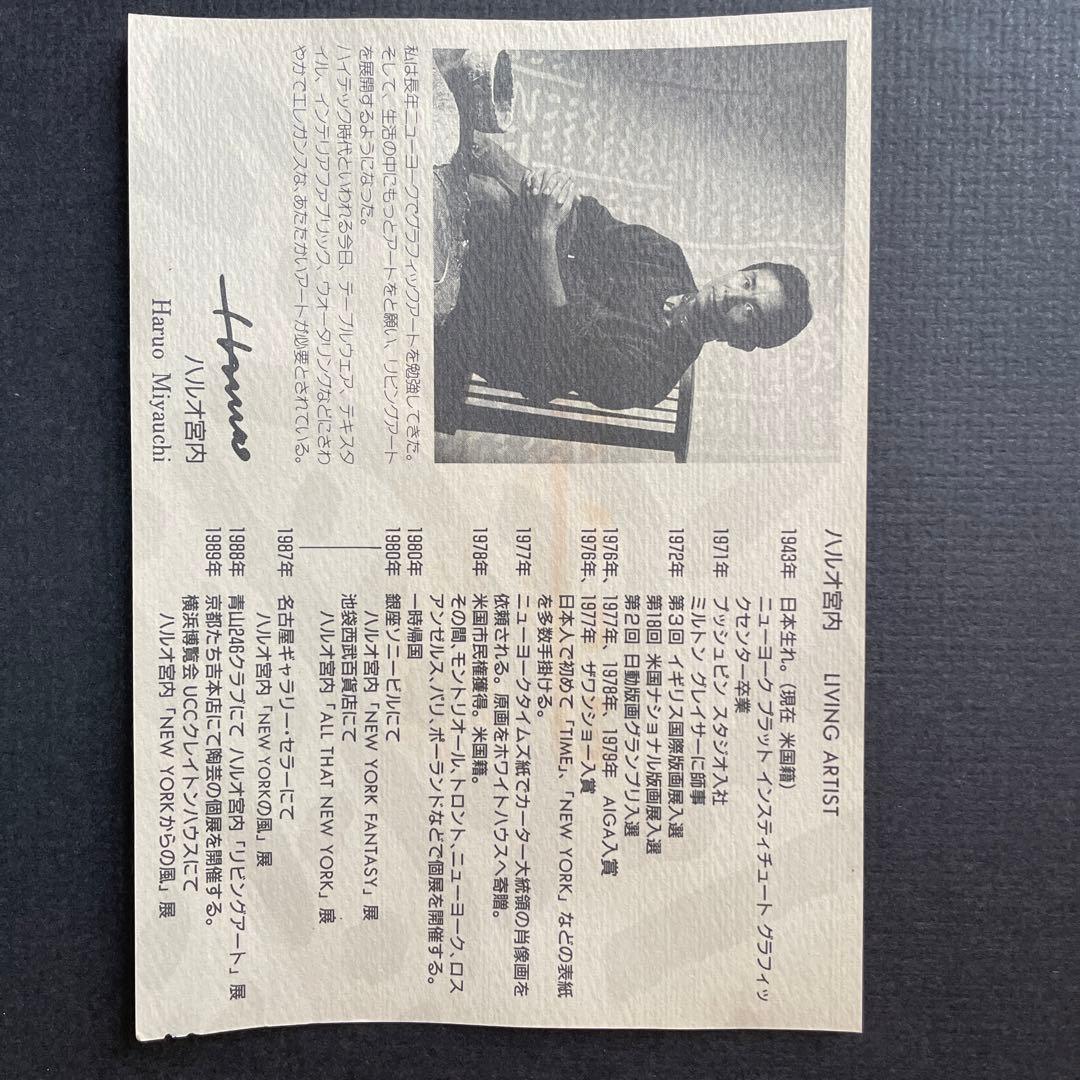 私は長年ニューヨークでグラフィックアートを勉強してきた。
そして、生活の中にもっとアートをと願い、リビングアート
を展開するようになった。
ハイテック時代といわれる今日、テーブルウェア、テキスタ
イル、インテリアファブリック、ウォータリングなどにさわ
やかでエレガンスな、あたたかいアートが必要とされている。
Haruo
ハルオ宮内
Haruo Miyauchi
ハルオ宮内 LIVING ARTIST
1943年 日本生れ。(現在 米国籍)
ニューヨーク プラット インスティチュート グラフィッ
クセンター卒業
1971年 プッシュピン スタジオ入社
ミルトン グレイサーに師事
1972年 第3回 イギリス国際版画展入選
第18回 米国ナショナル版画展入選
第2回 日動版画グランプリ入選
1976年、1977年、1978年、1979年 AIGA入賞
1976年、1977年 ザワンショー入賞
日本人で初めて「TIME」、「NEW YORK」などの表紙
を多数手掛ける。
1977年 ニューヨークタイムズ紙でカーター大統領の肖像画を
依頼される。原画をホワイトハウスへ寄贈。
1978年 米国市民権獲得。米国籍。
その間、モントリオール、トロント、ニューヨーク、ロス
アンゼルス、パリ、ポーランドなどで個展を開催する。
1980年 一時帰国
1980年 銀座ソニービルにて
ハルオ宮内「NEW YORK FANTASY」展
池袋西武百貨店にて
ハルオ宮内「ALL THAT NEW YORK」展
1987年 名古屋ギャラリー・セラーにて
ハルオ宮内「NEW YORKの風」展
1988年 青山246クラブにて ハルオ宮内「リビングアート」展
1989年 京都たち吉本店にて陶芸の個展を開催する。
横浜博覧会 UCCクレイトンハウスにて
ハルオ宮内「NEW YORKからの風」展